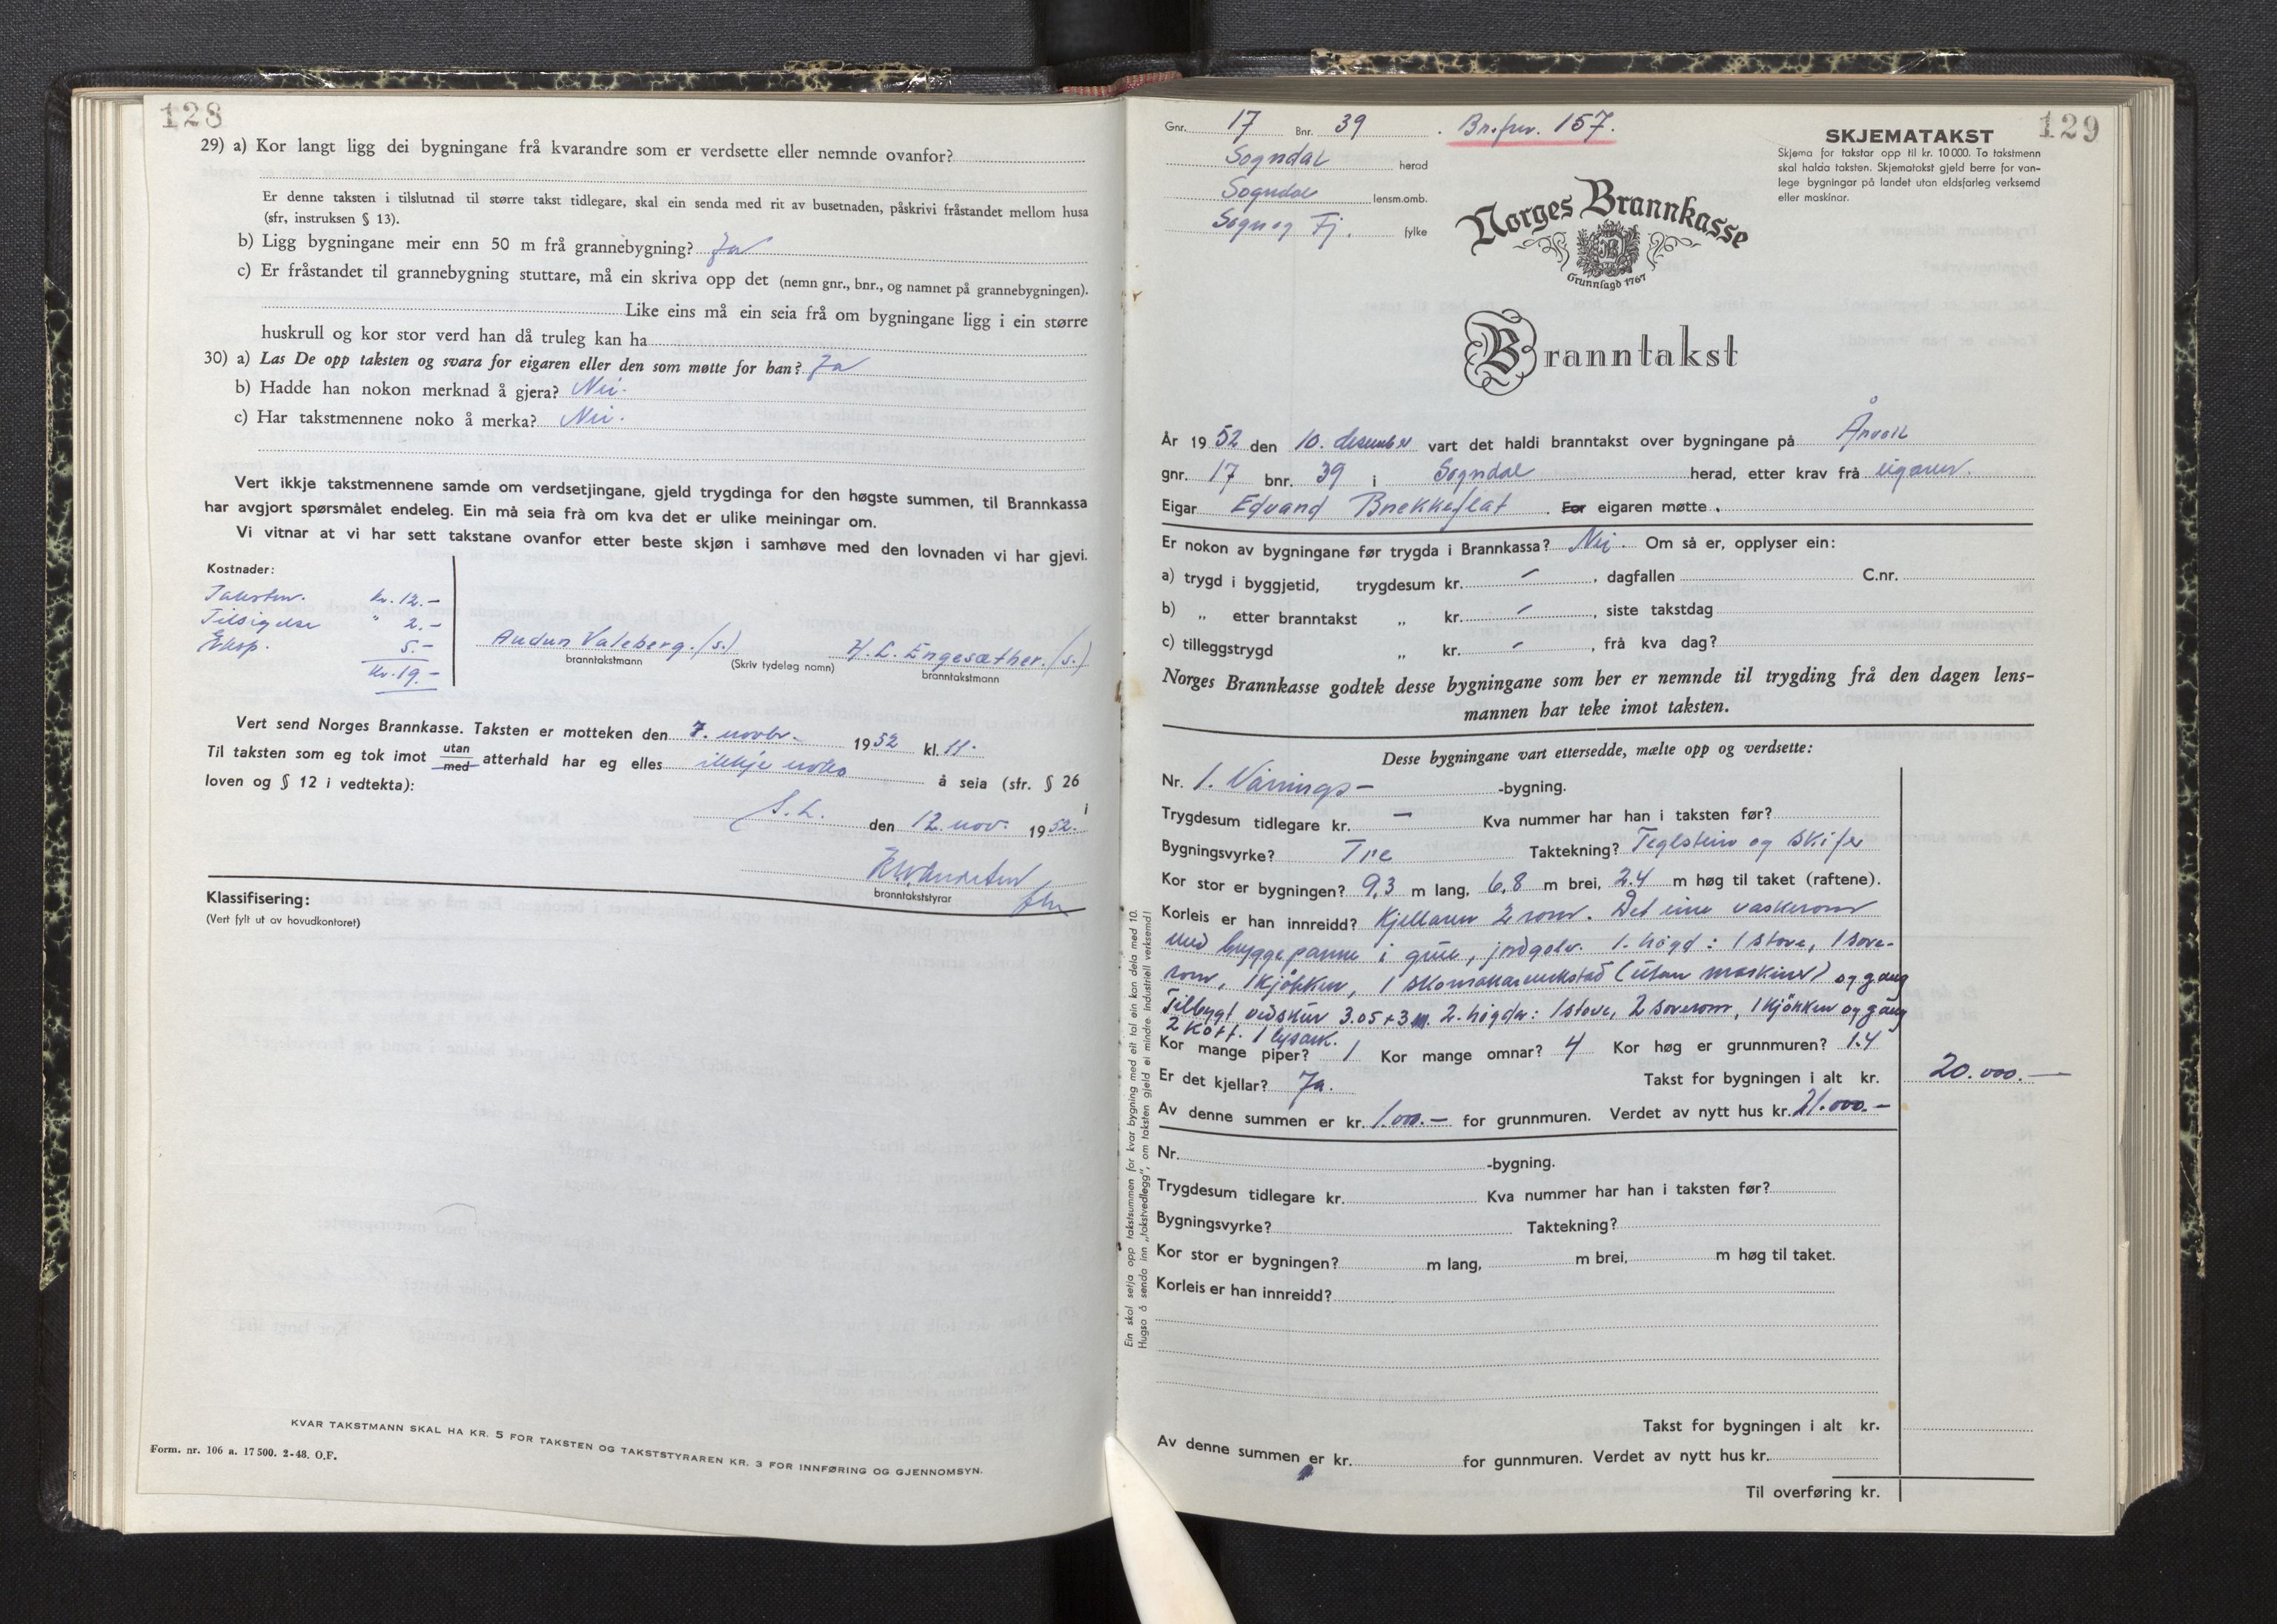 128
29) a) Kor langt ligg dei bygningane frå kvarandre som er verdsette eller nemnde ovanfor?
Er denne taksten i tilslutnad til større takst tidlegare, skal ein senda med rit av busetnaden, påskrivi fråstandet mellom husa
(sfr, instruksen § 13).
b) Ligg bygningane meir enn 50 m frå grannebygning? Ja
c) Er fråstandet til grannebygning stuttare, må ein skriva opp det (nemn gnr., bnr., og namnet på grannebygningen).
Like eins må ein seia frå om bygningane ligg i ein større
huskrull og kor stor verd han då truleg kan ha
30) a) Las De opp taksten og svara for eigaren eller den som møtte for han? Ja
b) Hadde han nokon merknad å gjera? Nei.
c) Har takstmennene noko å merka? Nei.
Vert ikkje takstmennene samde om verdsetjingane, gjeld trygdinga for den høgste summen, til Brannkassa
har avgjort spørsmålet endeleg. Ein må seia frå om kva det er ulike meiningar om.
Vi vitnar at vi har sett takstane ovanfor etter beste skjøn i samhøve med den lovnaden vi har gjevi.
Kostnader:
Takstm. kr. 12.-
Tilsigelse " 2.-
Eksp. 5.-
kr. 19.-
Audun Valeberg. /s.) H. L. Engesæther. /s.)
branntakstmann (Skriv tydeleg namn) branntakstmann
Vert send Norges Brannkasse. Taksten er motteken den 7. novbr. 1952 kl. 11.
Til taksten som eg tok imot utan med atterhald har eg elles ikkje noko å seia (sfr. § 26 i
loven og § 12 i vedtekta):
S. L. den 12. nov. 1952.
branntakststyrar
Klassifisering:
(Vert fylt ut av hovudkontoret)
KVAR TAKSTMANN SKAL HA KR. 5 FOR TAKSTEN OG TAKSTSTYRAREN KR. 3 FOR INNFØRING OG GJENNOMSYN.
Form. nr. 106 a. 17 500. 2-48. O.F.
129
Gnr. 17 Bnr. 39 . Br.fnr. 157.
Sogndal herad
Sogndal lensm.omb.
Sogn og Fj. fylke
SKJEMATAKST
Skjema for takstar opp til kr. 10 000. To takstmenn
skal halda taksten. Skjematakst gjeld berre for van-
lege bygningar på landet utan eldsfarleg verksemd
eller maskinar.
Norges Brannkasse
Grunnlagd 1767
Branntakst
År 1952 den 10. desember vart det haldi branntakst over bygningane på Årvoll
gnr. 17 bnr. 39 i Sogndal herad, etter krav frå eigaren.
Eigar Edvard Brekkeflat . For eigaren møtte .
Er nokon av bygningane før trygda i Brannkassa? Nei. Om så er, opplyser ein:
a) trygd i byggjetid, trygdesum kr. - , dagfallen C.nr.
b) „ etter branntakst „ kr. - , siste takstdag
c) tilleggstrygd „ kr. - , frå kva dag?
Norges Brannkasse godtek desse bygningane som her er nemnde til trygding frå den dagen lens-
mannen har teke imot taksten.
Desse bygningane vart ettersedde, mælte opp og verdsette:
Nr. 1. Vånings- -bygning.
Trygdesum tidlegare kr. - Kva nummer har han i taksten før?
Bygningsvyrke? Tre Taktekning? Teglstein og skifer
Kor stor er bygningen? 9,3 m lang, 6,8 m brei, 2.4 m høg til taket (raftene).
Korleis er han innreidd? Kjellaren 2 rom. Det eine vaskerom
med bryggepanne i grue, jordgolv. 1. høgd: 1 stove, 1 sove-
rom, 1 kjøkken, 1 skomakarverkstad (utan maskiner) og gang
Tilbygt vedskur 3.05+3 m. 2. høgda: 1 stove, 2 soverom, 1 kjøkken og gang
2 kott. 1 lysark.
Kor mange piper? 1 Kor mange omnar? 4 Kor høg er grunnmuren? 1.4
Er det kjellar? Ja. Takst for bygningen i alt kr. 20.000.-
Av denne summen er kr. 1.000.- for grunnmuren. Verdet av nytt hus kr. 21.000.-
Nr. -bygning.
Trygdesum tidlegare kr. Kva nummer har han i taksten før?
Bygningsvyrke? Taktekning?
Kor stor er bygningen? m lang, m brei, m høg til taket.
Korleis er han innreidd?
Takst for bygningen i alt kr.
Av denne summen er kr. for gunnmuren. Verdet av nytt hus kr.
Til overføring kr.
Ein skal setja opp takstsummen for kvar bygning med eit tal ein kan dela med 10.
Hugsa å senda inn „takstvedlegg", om taksten gjeld ei mindre industriell verksemd!